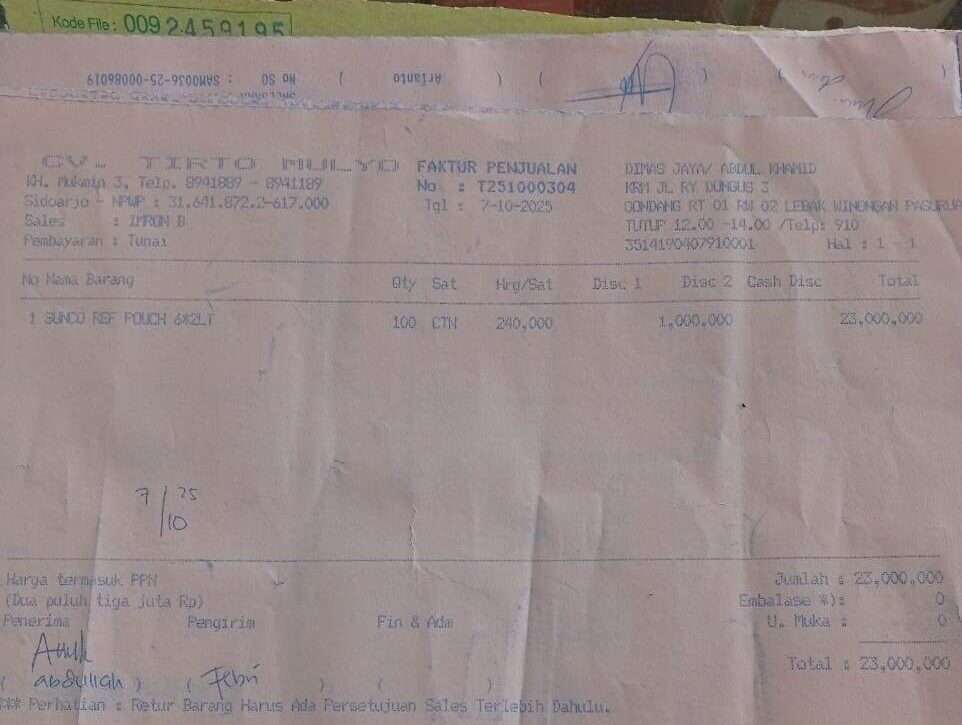 Kode File : 0092459195
No SO : SAM0036-25-00086019 ( Arianto ) ( ) ( )
CV. TIRTO MULYO
KH. Mukmin 3, Telp. 8941889 - 8941189
Sidoarjo - NPWP : 31.641.872.3-617.000
Sales : IMRON B
Pembayaran : Tunai
FAKTUR PENJUALAN
No : T251000304
Tgl : 7-10-2025
DIMAS JAYA/ ABDUL KHAMID
KRM JL RY DUNGUS 3
GONDANG RT 01 RW 02 LEBAK WINONGAN PASURUA
TUTUP 12.00 -14.00 /Telp: 910
3514190407910001 Hal : 1 - 1
No Nama Barang Qty Sat Hrg/Sat Disc 1 Disc 2 Cash Disc Total
1 SUNCO REF POUCH 6*2LT 100 CTN 240,000 1,000,000 23,000,000
7/10 25
Harga termasuk PPN
(Dua puluh tiga juta Rp)
Jumlah : 23,000,000
Embalase *): 0
U. Muka : 0
Total : 23,000,000
Penerima Pengirim Fin & Adm
( abdullah ) ( Febri ) ( )
*** Perhatian : Retur Barang Harus Ada Persetujuan Sales Terlebih Dahulu.